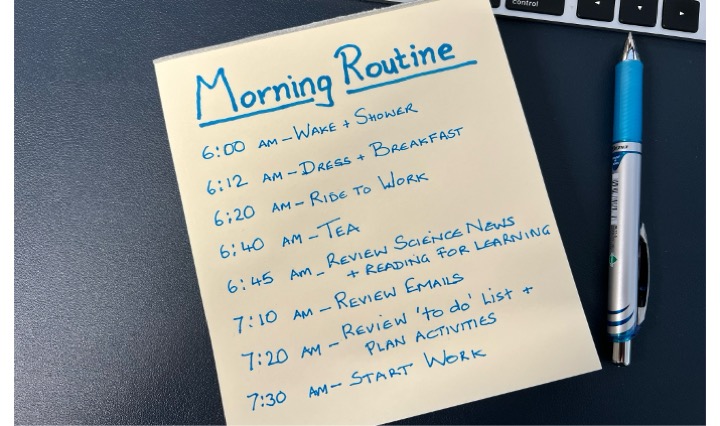 control
Morning Routine
6:00 AM – WAKE + SHOWER
6:12 AM – DRESS + BREAKFAST
6:20 AM – RIDE TO WORK
6:40 AM – TEA
6:45 AM – REVIEW SCIENCE NEWS
+ READING FOR LEARNING
7:10 AM – REVIEW EMAILS
7:20 AM – REVIEW 'to do' LIST +
PLAN ACTIVITIES
7:30 AM – START WORK